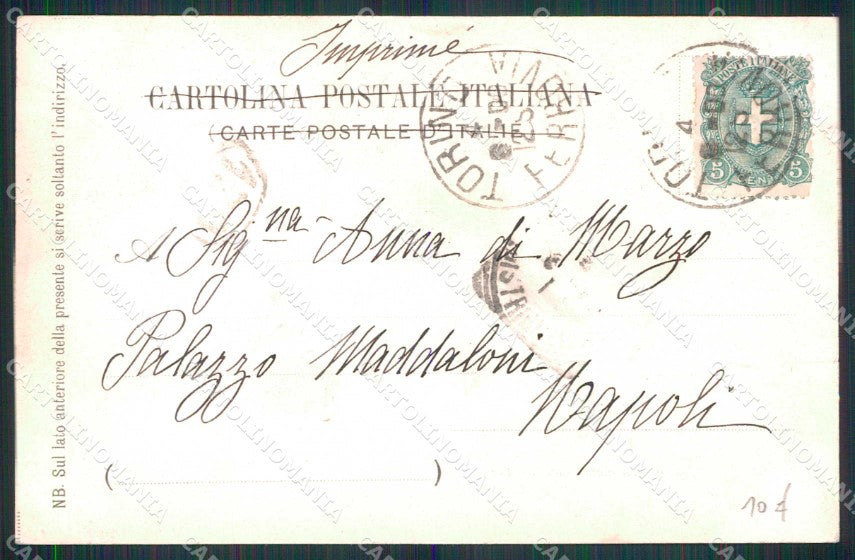 Imprimé
CARTOLINA POSTALE ITALIANA
(CARTE POSTALE D'ITALIE)
TORINO
FERROVIA
4
TORINO
FERROVIA
POSTE ITALIANE
5
5
CENT
A Signa Anna di Marzo
Palazzo Maddaloni
Napoli
( )
NB. Sul lato anteriore della presente si scrive soltanto l'indirizzo.
10 €
CARTOLINOMANIA